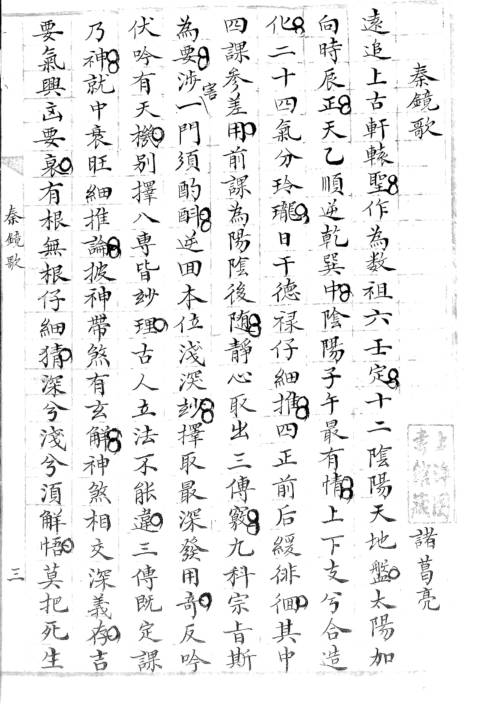 秦鏡歌
諸葛亮
遠追上古軒轅聖作為数祖六壬定十二陰陽天地盤太陽加
向時辰正天乙順逆乾巽中陰陽子午最有情上下支兮合造
化二十四氣分玲瓏日干德禄仔細推四正前后緩徘徊其中
四課參差用前課為陽陰後随靜心取出三傳竅九科宗旨斯
為要涉害一門須酌酙逆囬本位淺深玅擇取最深發用奇反吟
伏吟有天機别擇八専皆玅理古人立法不能違三傳既定課
乃神就中衰旺細推論披神帶煞有玄解神煞相交深義存吉
要氣興凶要衰有根無根仔細猜深兮淺兮須解悟莫把死生
秦鏡歌
三